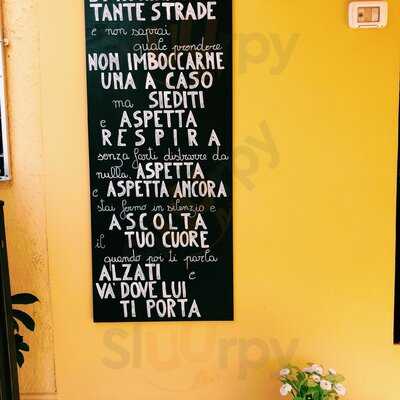 TANTE STRADE
e non saprai
quale prendere
NON IMBOCCARNE
UNA A CASO
ma SIEDITI
e ASPETTA
RESPIRA
senza farti distrarre da
nulla, ASPETTA
e ASPETTA ANCORA
stai fermo in silenzio e
ASCOLTA
il TUO CUORE
quando poi ti parla
ALZATI e
VA' DOVE LUI
TI PORTA
sluurpy